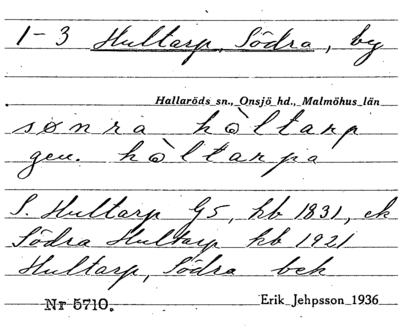 1-3 Hultarp, Södra, by
Hallaröds sn., Onsjö hd., Malmöhus län
sønra hòltarp
gen. hòltarpa
S. Hultarp G5, kb 1831, ek
Södra Hultarp kb 1921
Hultarp, Södra bek
Nr 5710. Erik Jehpsson 1936